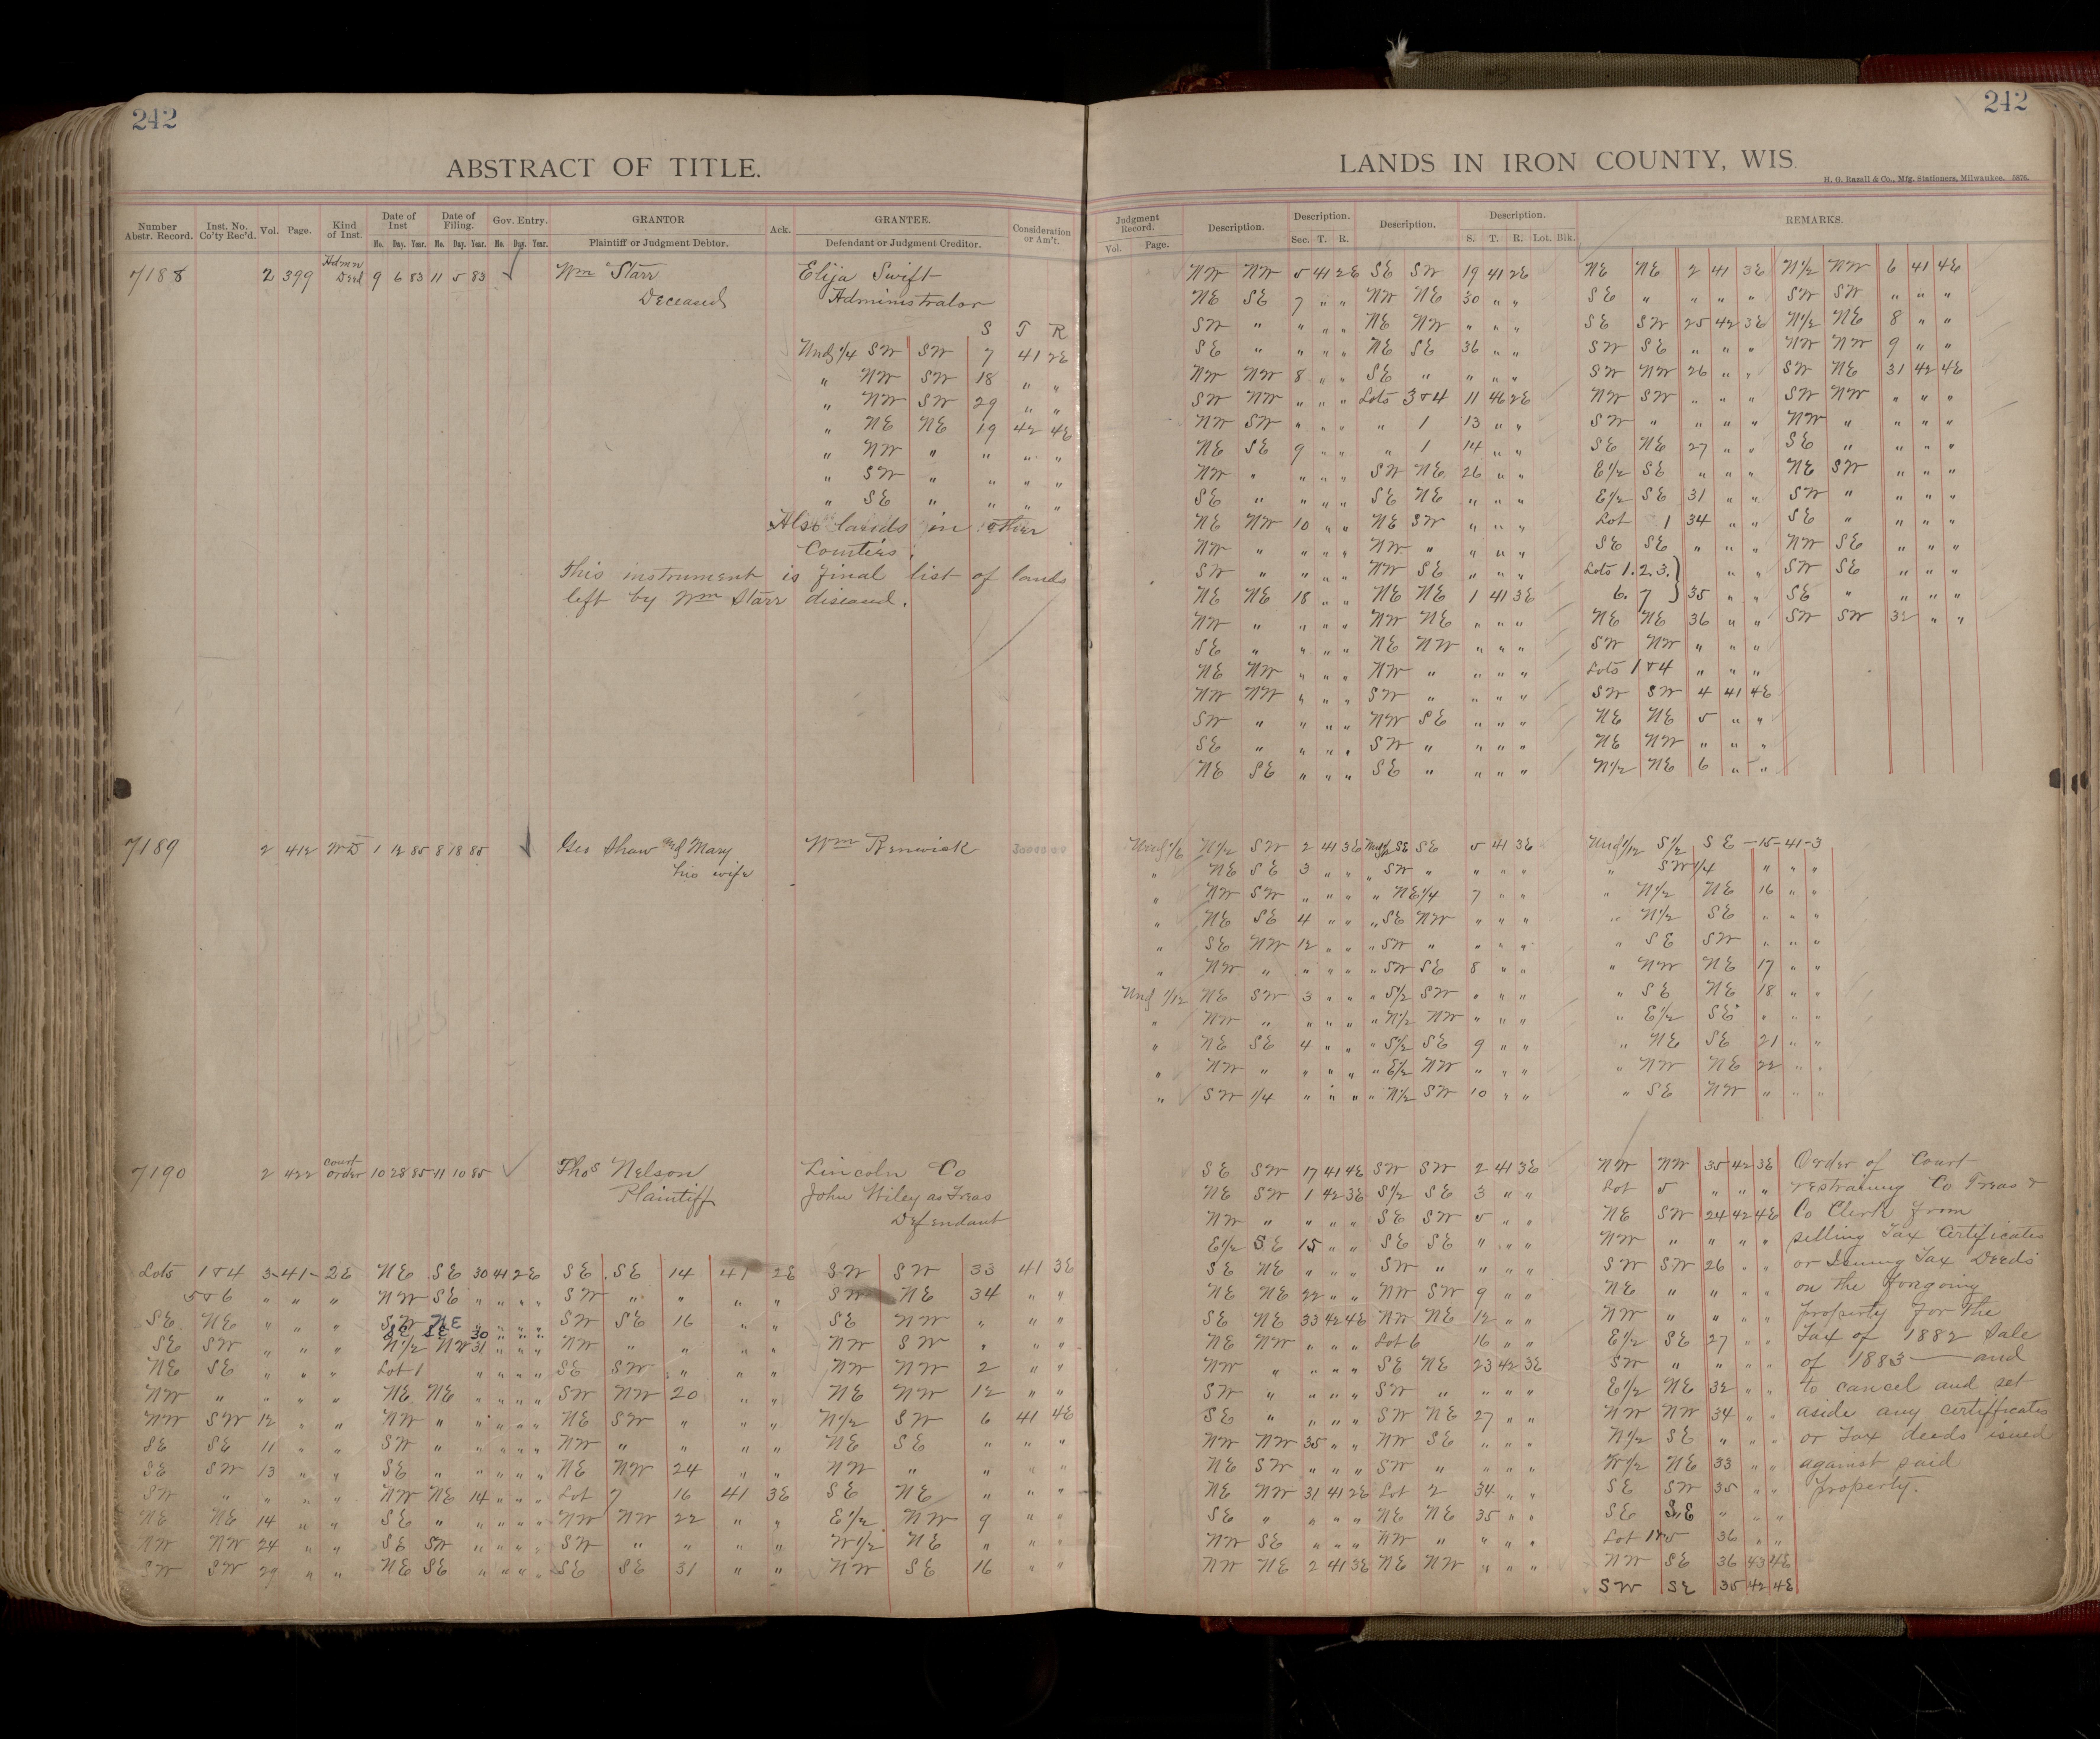 242
ABSTRACT OF TITLE.
Number Abstr. Record. Inst. No. Co'ty Rec'd. Vol. Page. Kind of Inst. Date of Inst Mo. Day. Year. Date of Filing. Mo. Day. Year. Gov. Entry. Mo. Day. Year. GRANTOR Plaintiff or Judgment Debtor. Ack. GRANTEE. Defendant or Judgment Creditor. Consideration or Am't.
7188 2 399 Admn Deed 9 6 83 11 5 83 Wm Starr Elija Swift
Deceased Administrator
S T R
Undg 1/4 SW SW 7 41 2E
" NW SW 18 " "
" NW SW 29 " "
" NE NE 19 42 4E
" NW " " " "
" SW " " " "
" SE " " " "
Also lands in other
Counties.
This instrument is final list of lands
left by Wm Starr diseased.
7189 2 412 WD 1 12 85 8 18 85 Geo Shaw and Mary Wm Renwick
his wife
7190 2 422 Court order 10 28 85 11 10 85 Thos Nelson Lincoln Co
Plaintiff John Wiley as Treas
Defendant
Lots 1 & 4 3-41-2E NE SE 30 41 2E SE SE 14 41 2E SW SW 33 41 3E
5 & 6 " " " NW SE " " " " SW " " " " SW NE 34 " "
SE NE " " " SW NE " " " SW SE 16 " " SE NW " " "
SE SE 30 " " "
SE SW " " " N1/2 NW 31 " " " NW " " " " NW SW " " "
NE SE " " " Lot 1 " " " " SE SW " " " NW NW 2 " "
NW " " " " NE NE " " " " SW NW 20 " " NE NW 12 " "
NW SW 12 " " NW " " " " " NE SW " " " N1/2 SW 6 41 4E
SE SE 11 " " SW " " " " " NW " " " " NE SE " " "
SE SW 13 " " SE " " " " " NE NW 24 " " NW " " " "
SW " " " " NW NE 14 " " " Lot 7 16 41 3E SE NE " " "
NE NE 14 " " SE " " " " " NW NW 22 " " E1/2 NW 9 " "
NW NW 24 " " SE SW " " " " SW " " " " W1/2 NE " " "
SW SW 29 " " NE SE " " " " SE SE 31 " " NW SE 16 " "
242
LANDS IN IRON COUNTY, WIS.
H. G. Razall & Co., Mfg. Stationers, Milwaukee. 5876.
Judgment Record. Vol. Page. Description. Description. Sec. T. R. Description. Description. S. T. R. Lot. Blk. REMARKS.
NW NW 5 41 2E SE SW 19 41 2E NE NE 2 41 3E N1/2 NW 6 41 4E
NE SE 7 " " NW NE 30 " " SE " " " " SW SW " " "
SW " " " " NE NW " " " SE SW 25 42 3E N1/2 NE 8 " "
SE " " " " NE SE 36 " " SW SE " " " NW NW 9 " "
NW NW 8 " " SE " " " " SW NW 26 " " SW NE 31 42 4E
SW NW " " " Lots 3 & 4 11 46 2E NW SW " " " SW NW " " "
NW SW " " " " 1 13 " " SW " " " " NW " " " "
NE SE 9 " " " 1 14 " " SE NE 27 " " SE " " " "
NW " " " " SW NE 26 " " E1/2 SE " " " NE SW " " "
SE " " " " SE NE " " " E1/2 SE 31 " " SW " " " "
NE NW 10 " " NE SW " " " Lot 1 34 " " SE " " " "
NW " " " " NW " " " " SE SE " " " NW SE " " "
SW " " " " NW SE " " " Lots 1.2.3.} " " SW SE " " "
NE NE 18 " " NE NE 1 41 3E 6. 7 } 35 " " SE " " " "
NW " " " " NW NE " " " NE NE 36 " " SW SW 32 " "
SE " " " " NE NW " " " SW NW " " "
NE NW " " " NW " " " " Lots 1 & 4 " " "
NW NW " " " SW " " " " SW SW 4 41 4E
SW " " " " NW SE " " " NE NE 5 " "
SE " " " " SW " " " " NE NW " " "
NE SE " " " SE " " " " N1/2 NE 6 " "
Undg 1/6 N1/2 SW 2 41 3E SE SE 5 41 3E Undg 1/12 S1/2 SE -15-41-3
" NE SE 3 " " " SW " " " " " SW 1/4 " " "
" NW SW " " " " NE1/4 7 " " " N1/2 NE 16 " "
" NE SE 4 " " " SE NW " " " " N1/2 SE " " "
" SE NW 12 " " " SW " " " " " SE SW " " "
" NW " " " " " SW SE 8 " " " NW NE 17 " "
Undg 1/12 NE SW 3 " " " S1/2 SW " " " " SE NE 18 " "
" NW " " " " " N1/2 NW " " " " E1/2 SE " " "
" NE SE 4 " " " S1/2 SE 9 " " " NE SE 21 " "
" NW " " " " " E1/2 NW " " " " NW NE 22 " "
" SW 1/4 " " " " N1/2 SW 10 " " " SE NW " " "
SE SW 17 41 4E SW SW 2 41 3E NW NW 35 42 3E Order of Court
NE SW 1 42 3E S1/2 SE 3 " " Lot 5 " " " restraining Co Treas &
NW " " " " SE SW 5 " " NE SW 24 42 4E Co Clerk from
E1/2 SE 15 " " SE SE " " " NW " " " " selling Tax Certificates
SE NE " " " SW " " " " SW SW 26 " " or Issuing Tax Deeds
NE NE 22 " " NW SW 9 " " NE " " " " on the forgoing
SE NE 33 42 4E NW NE 12 " " NW " " " " property for the
NE NW " " " Lot 6 16 " " E1/2 SE 27 " " Tax of 1882 Sale
NW " " " " SE NE 23 42 3E SW " " " " of 1883 — and
SW " " " " SW " " " " E1/2 NE 32 " " to cancel and set
SE " " " " SW NE 27 " " NW NW 34 " " aside any certifficates
NW NW 35 " " NW SE " " " N1/2 SE " " " or Tax deeds issued
NE SW " " " SW " " " " W1/2 NE 33 " " against said
NE NW 31 41 2E Lot 2 34 " " SE SW 35 " " Property.
SE " " " " NE NE 35 " " SE SE " " "
NW SE " " " NW " " " " Lot 1 & 5 36 " "
NW NE 2 41 3E NE NW " " " NW SE 36 43 4E
SW SE 35 42 4E